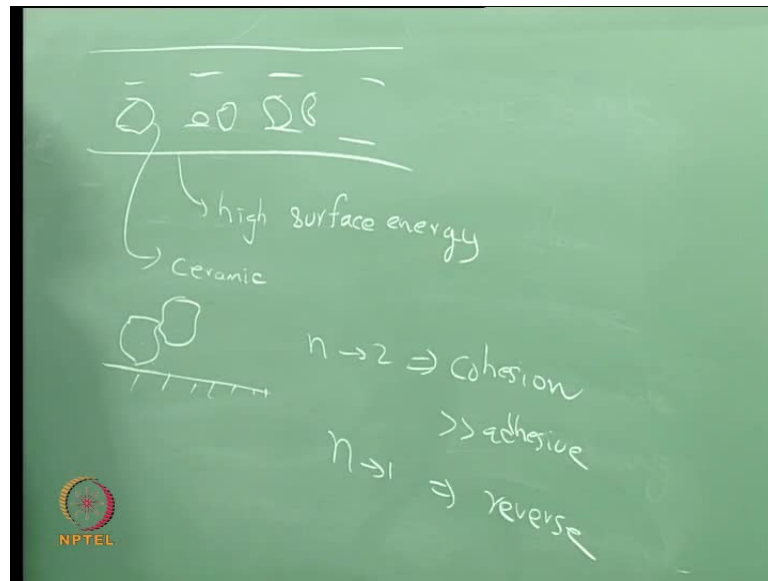 high surface energy
ceramic
n → 2 ⇒ Cohesion
>> adhesive
n → 1 ⇒ reverse
NPTEL